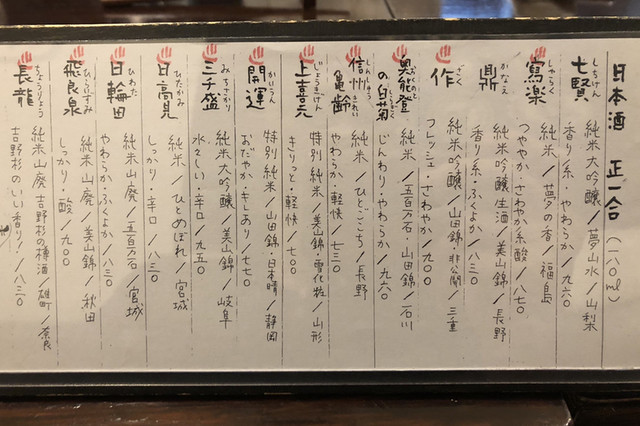 日本酒 正一合(一八〇ml)
七賢 しちけん
純米大吟醸/夢山水/山梨
香り系・やわらか/九六〇
寫楽 しゃらく
純米/夢の香/福島
つややか・さわやか系酸/八七〇
鼎 かなえ
純米吟醸生酒/美山錦/長野
香り系・ふくよか/八三〇
作 ざく
純米吟醸/山田錦・非公開/三重
フレッシュ・さわやか/九〇〇
奥能登の白菊 おくのと しらぎく
純米/五百万石・山田錦/石川
じんわり・やわらか/九〇〇
信州亀齢 しんしゅう きれい
純米/ひとごこち/長野
やわらか・軽快/七三〇
上喜元 じょうきげん
特別純米/美山錦・雪化粧/山形
きりっと・軽快/七〇〇
開運 かいうん
特別純米/山田錦・日本晴/静岡
おだやか・キレあり/七七〇
三千盛 みちさかり
純米大吟醸/美山錦/岐阜
水々しい・辛口/九五〇
日高見 ひたかみ
純米/ひとめぼれ/宮城
しっかり・辛口/八三〇
日輪田 ひわた
純米山廃/五百万石/宮城
やわらか・ふくよか/八三〇
飛良泉 ひらいずみ
純米山廃/美山錦/秋田
しっかり 酸/九〇〇
長龍 ちょうりょう
純米山廃 吉野杉の樽酒/雄町/奈良
吉野杉のいい香り!/八三〇